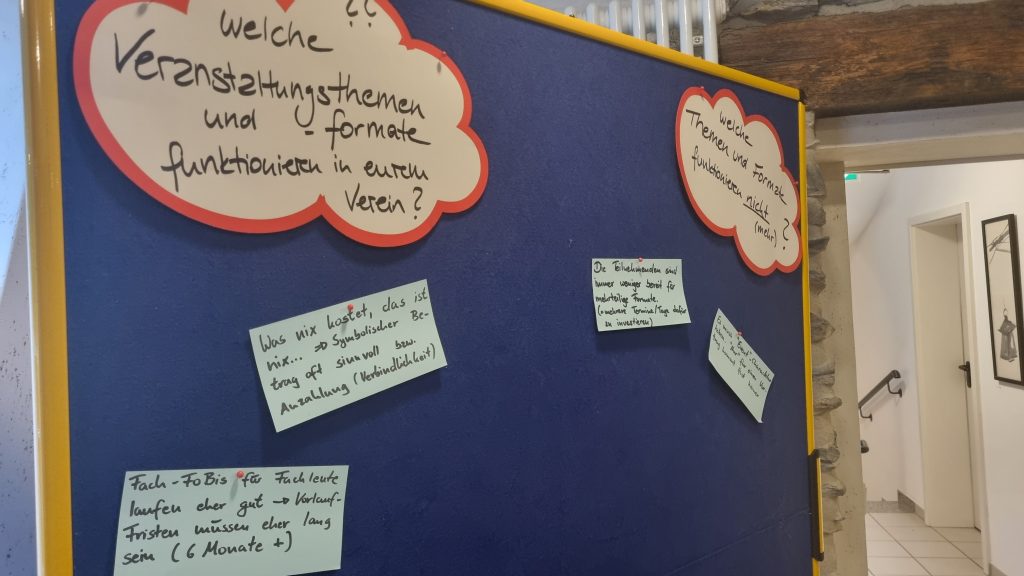 ??
welche
Veranstaltungsthemen
und - formate
funktionieren in eurem
Verein?
welche
Themen und Formate
funktionieren nicht
(mehr) ?
Was nix kostet, das ist
nix... => Symbolischer Be-
trag oft sinnvoll bzw.
Anzahlung (Verbindlichkeit)
Die Teilnehmenden sind
immer weniger bereit für
mehrteilige Formate.
(= mehrere Termine/Tage dafür
zu investieren)
Fach-FoBis für Fachleute
laufen eher gut → Vorlauf-
Fristen müssen eher lang
sein (6 Monate +)